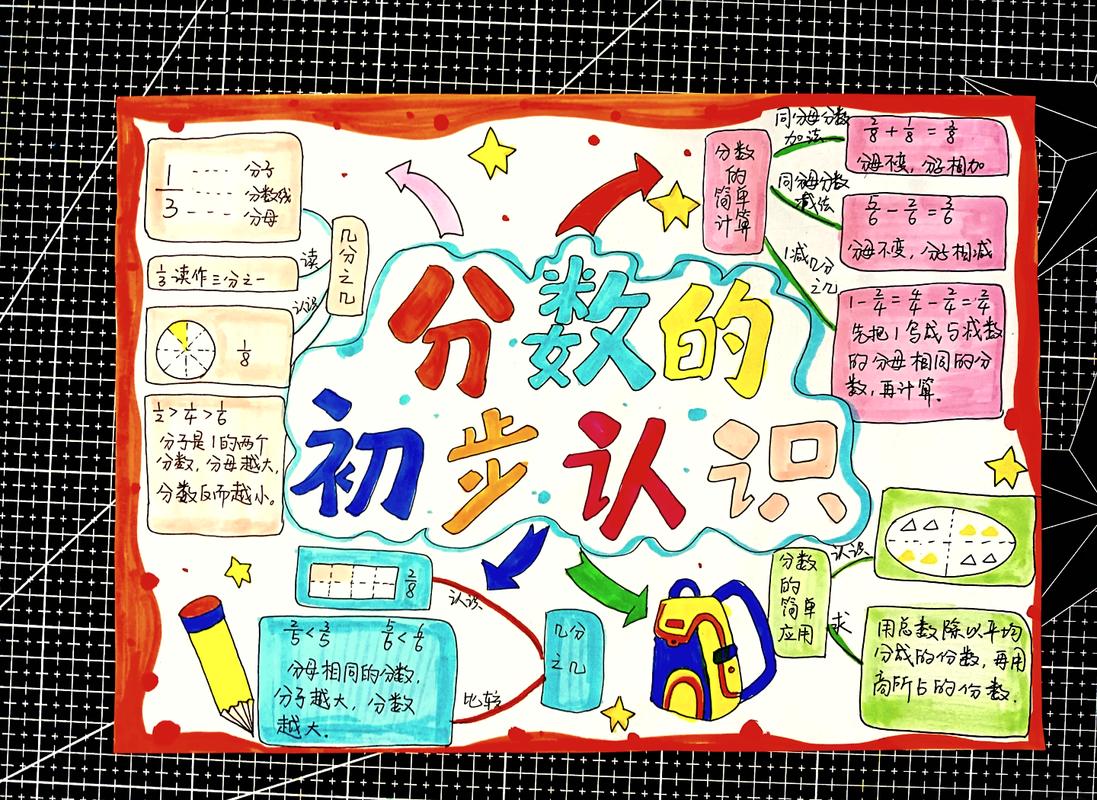 分数的
初步认识
几分之几
读
认识
1/3
分子
分数线
分母
1/3读作三分之一
1/8
1/2>1/4>1/6
分子是1的两个
分数,分母越大,
分数反而越小。
分数的简单计算
同分母分数
加法
分母不变,分子相加
同分母分数
减法
5/6-2/6=3/6
分母不变,分子相减
1减几分
之几
1-2/4=4/4-2/4=2/4
先把1写成与减数
的分母相同的分
数,再计算.
几分
之几
认识
2/8
比较
2/5<3/5
5/6<6/6
分母相同的分数,
分子越大,分数
越大.
分数
的
简单
应用
认识
求
用总数除以平均
分成的份数,再用
商所占的份数.